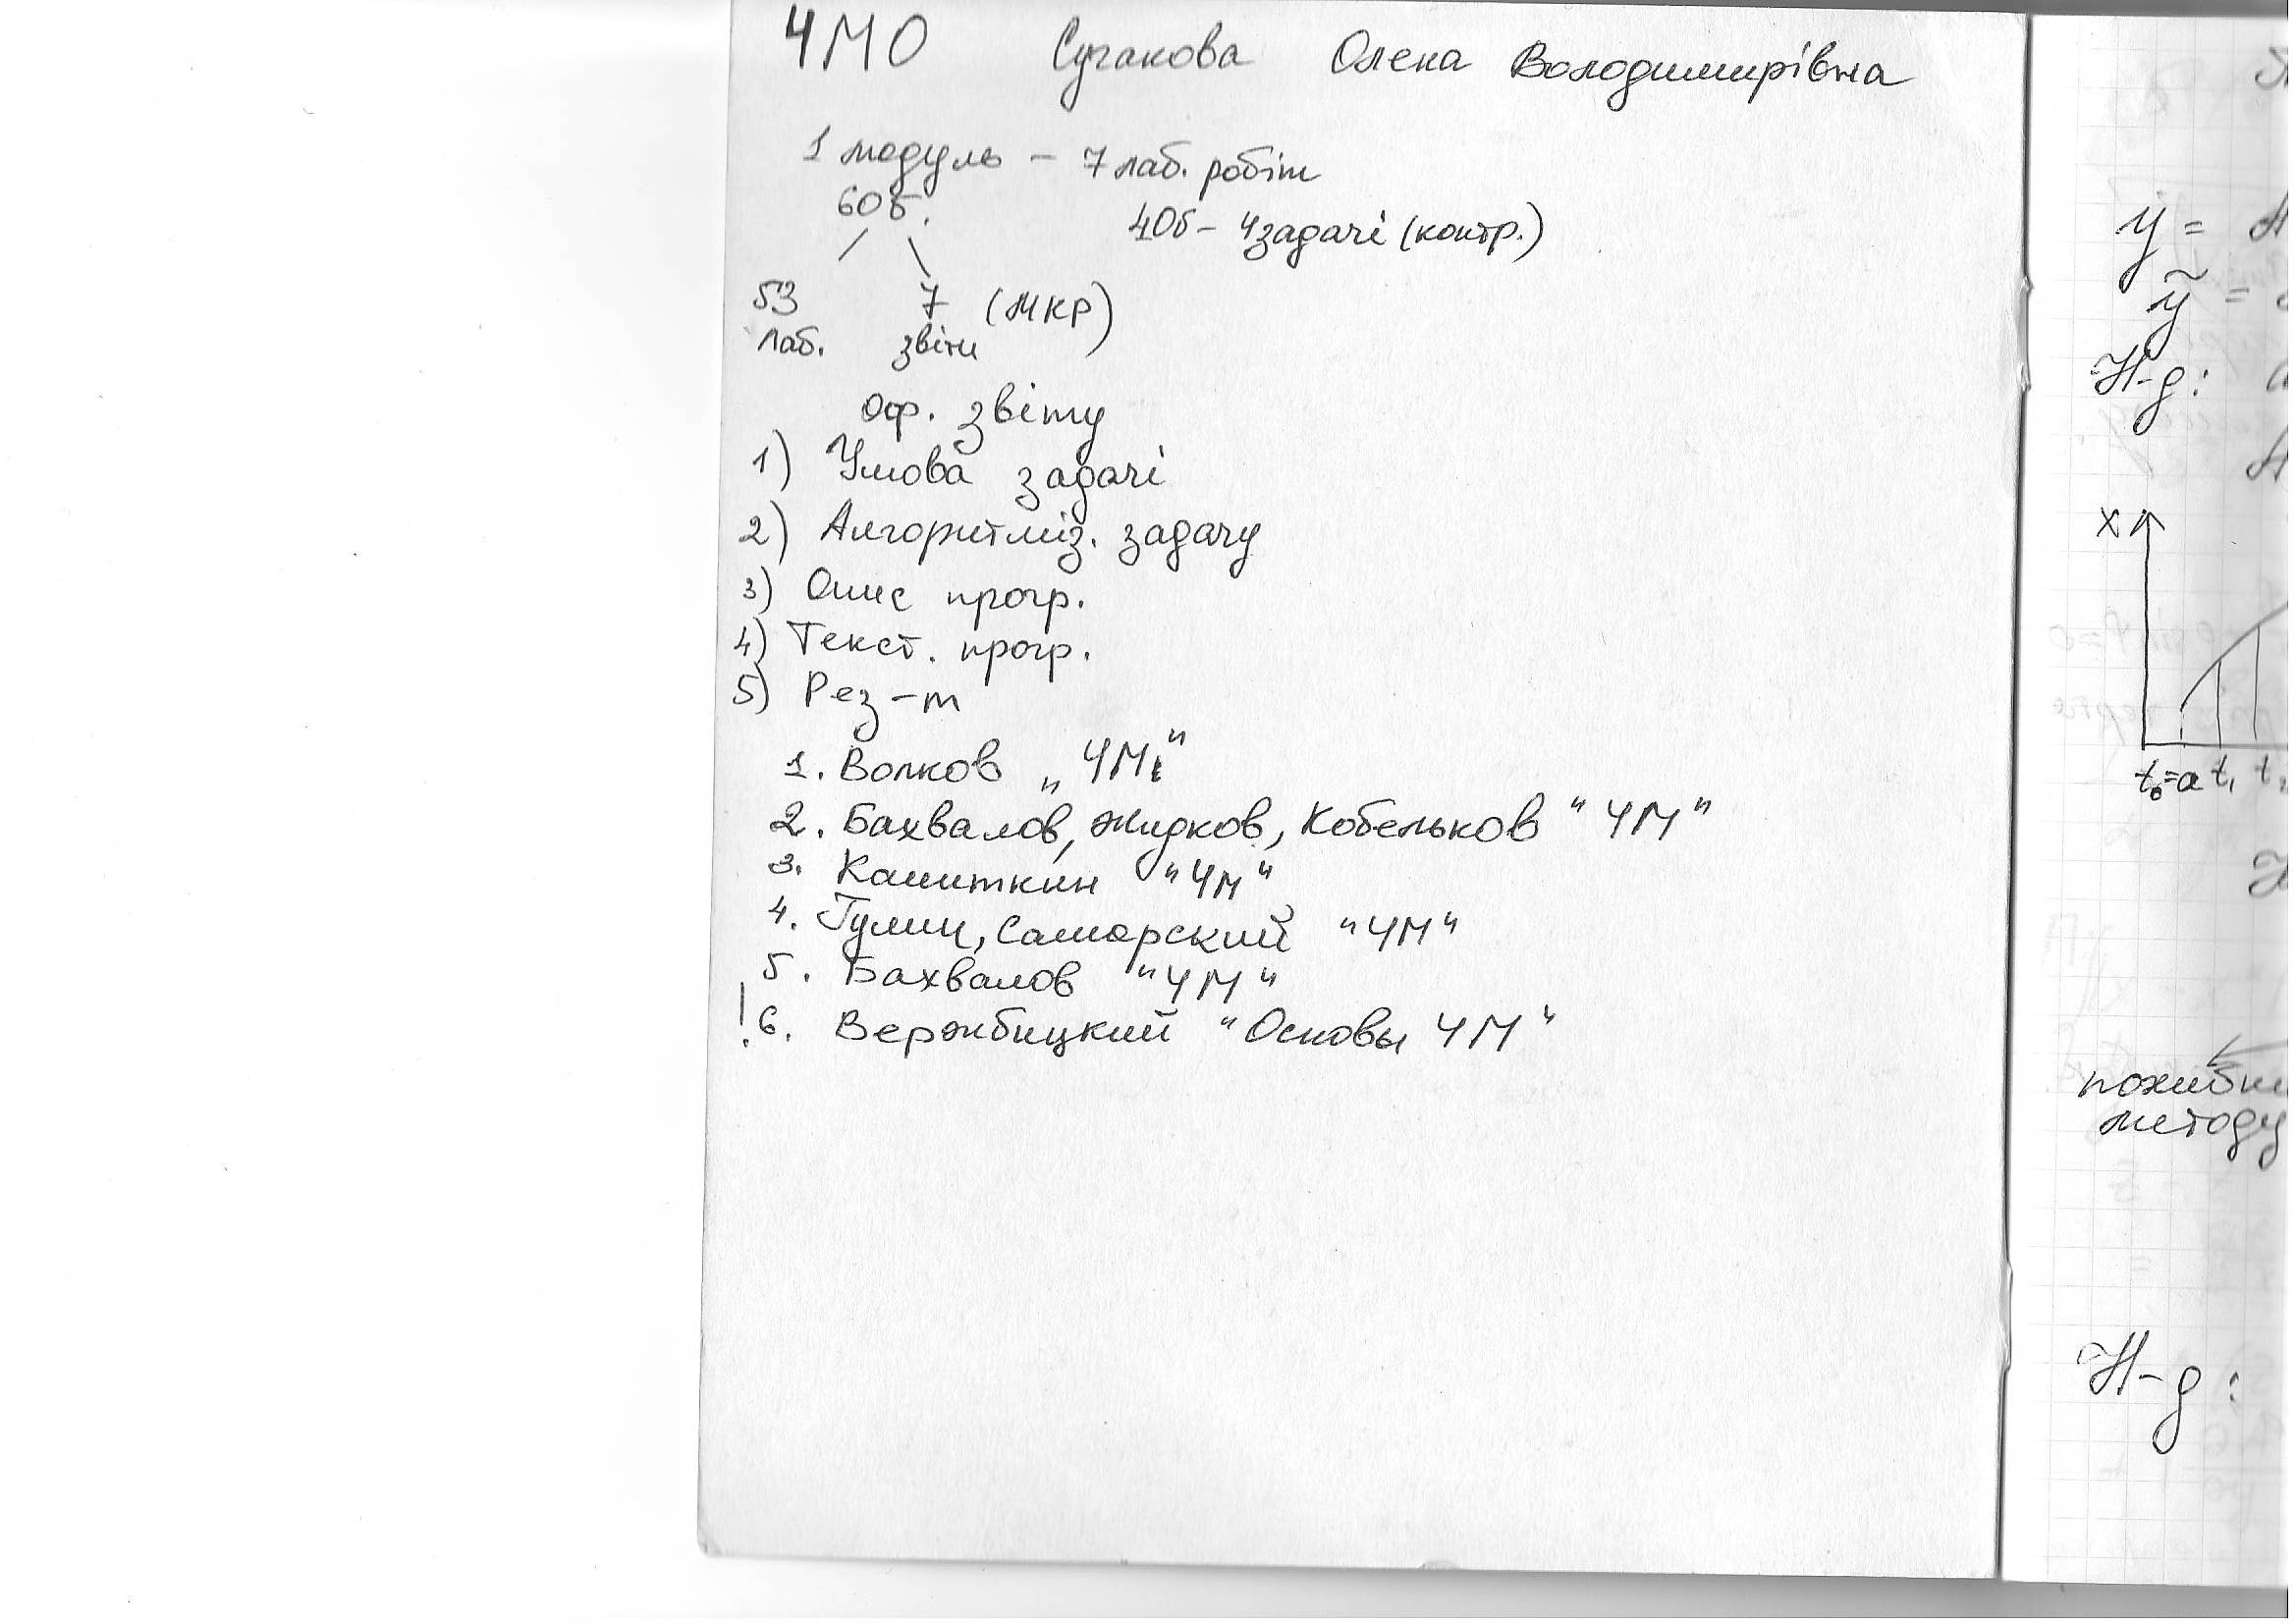 ЧМО Сугакова Олена Володимирівна
1 модуль – 7 лаб. робіт
60б.
40б – 4 задачі (контр.)
53 7 (МКР)
лаб. звіти
оф. звіту
1) Умова задачі
2) Алгоритміз. задачу
3) Опис прогр.
4) Текст. прогр.
5) Рез-т
1. Волков „ЧМ"
2. Бахвалов, Жидков, Кобельков "ЧМ"
3. Калиткин "ЧМ"
4. Гулин, Самарский "ЧМ"
5. Бахвалов "ЧМ"
! 6. Вержбицкий "Основы ЧМ"
y =
ỹ =
Н-д:
x
t₀=a t₁ t
похибки
методу
Н-д: